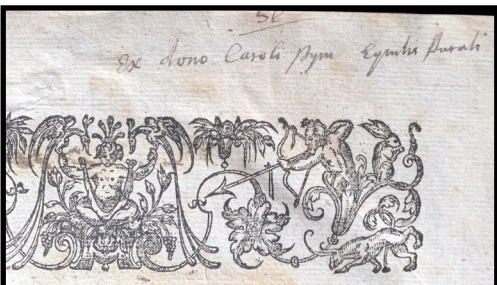 Ex dono Caroli Pym Equitis Aurati